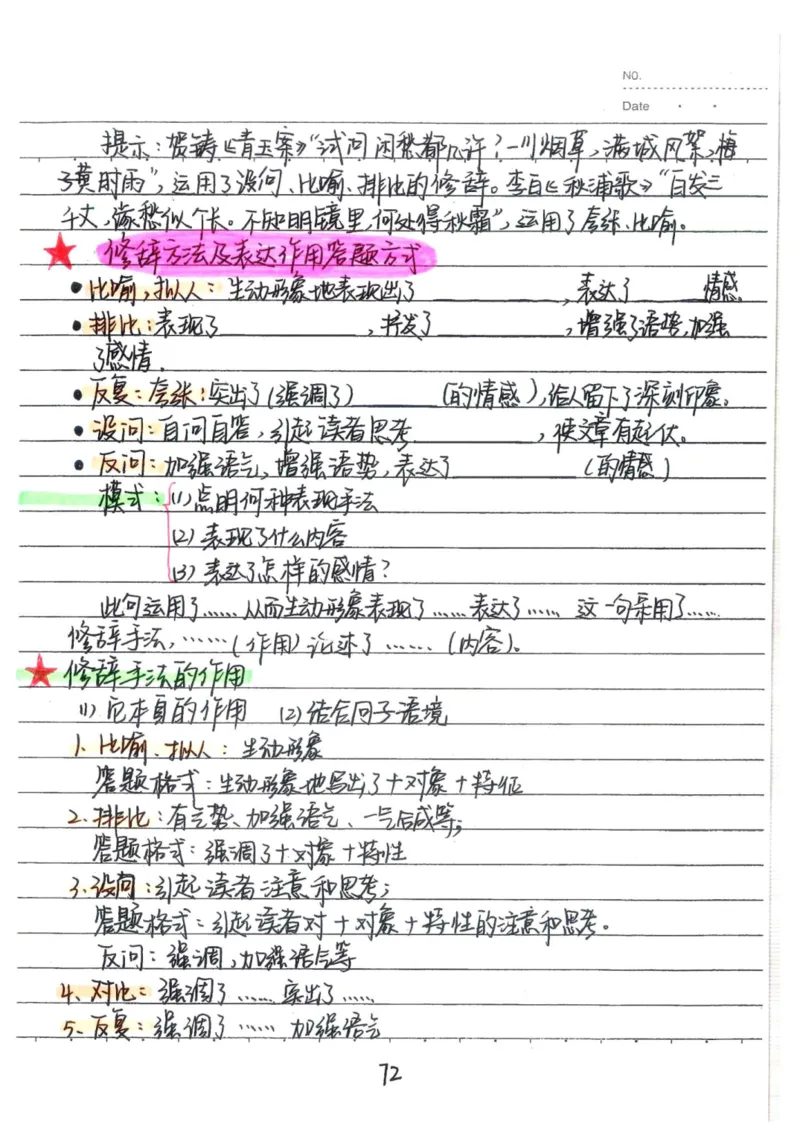 NO.
Date
提示：贺铸《青玉案》“试问闲愁都几许？一川烟草，满城风絮，梅
子黄时雨”，运用了设问、比喻、排比的修辞。李白《秋浦歌》“白发三
千丈，缘愁似个长。不知明镜里，何处得秋霜”，运用了夸张、比喻。
修辞方法及表达作用答题方式
• 比喻，拟人：生动形象地表现出了______，表达了____情感。
• 排比：表现了______，抒发了______，增强了语势，加强
了感情．
• 反复：夸张：突出了(强调了)____(的情感)，给人留下了深刻印象。
• 设问：自问自答，引起读者思考______，使文章有起伏。
• 反问：加强语气，增强语势，表达了______(的情感)
模式：(1)点明何种表现手法
(2)表现了什么内容
(3)表达了怎样的感情？
此句运用了……从而生动形象表现了……表达了…… 这一句采用了……
修辞手法，……(作用)论述了……(内容)。
修辞手法的作用
(1)它本身的作用 (2)结合句子语境
1、比喻、拟人：生动形象
答题格式：生动形象地写出了＋对象＋特征
2、排比：有气势、加强语气、一气呵成等；
答题格式：强调了＋对象＋特性
3、设问：引起读者注意和思考；
答题格式：引起读者对＋对象＋特性的注意和思考。
反问：强调，加强语气等
4、对比：强调了……突出了……
5、反复：强调了…… 加强语气
72